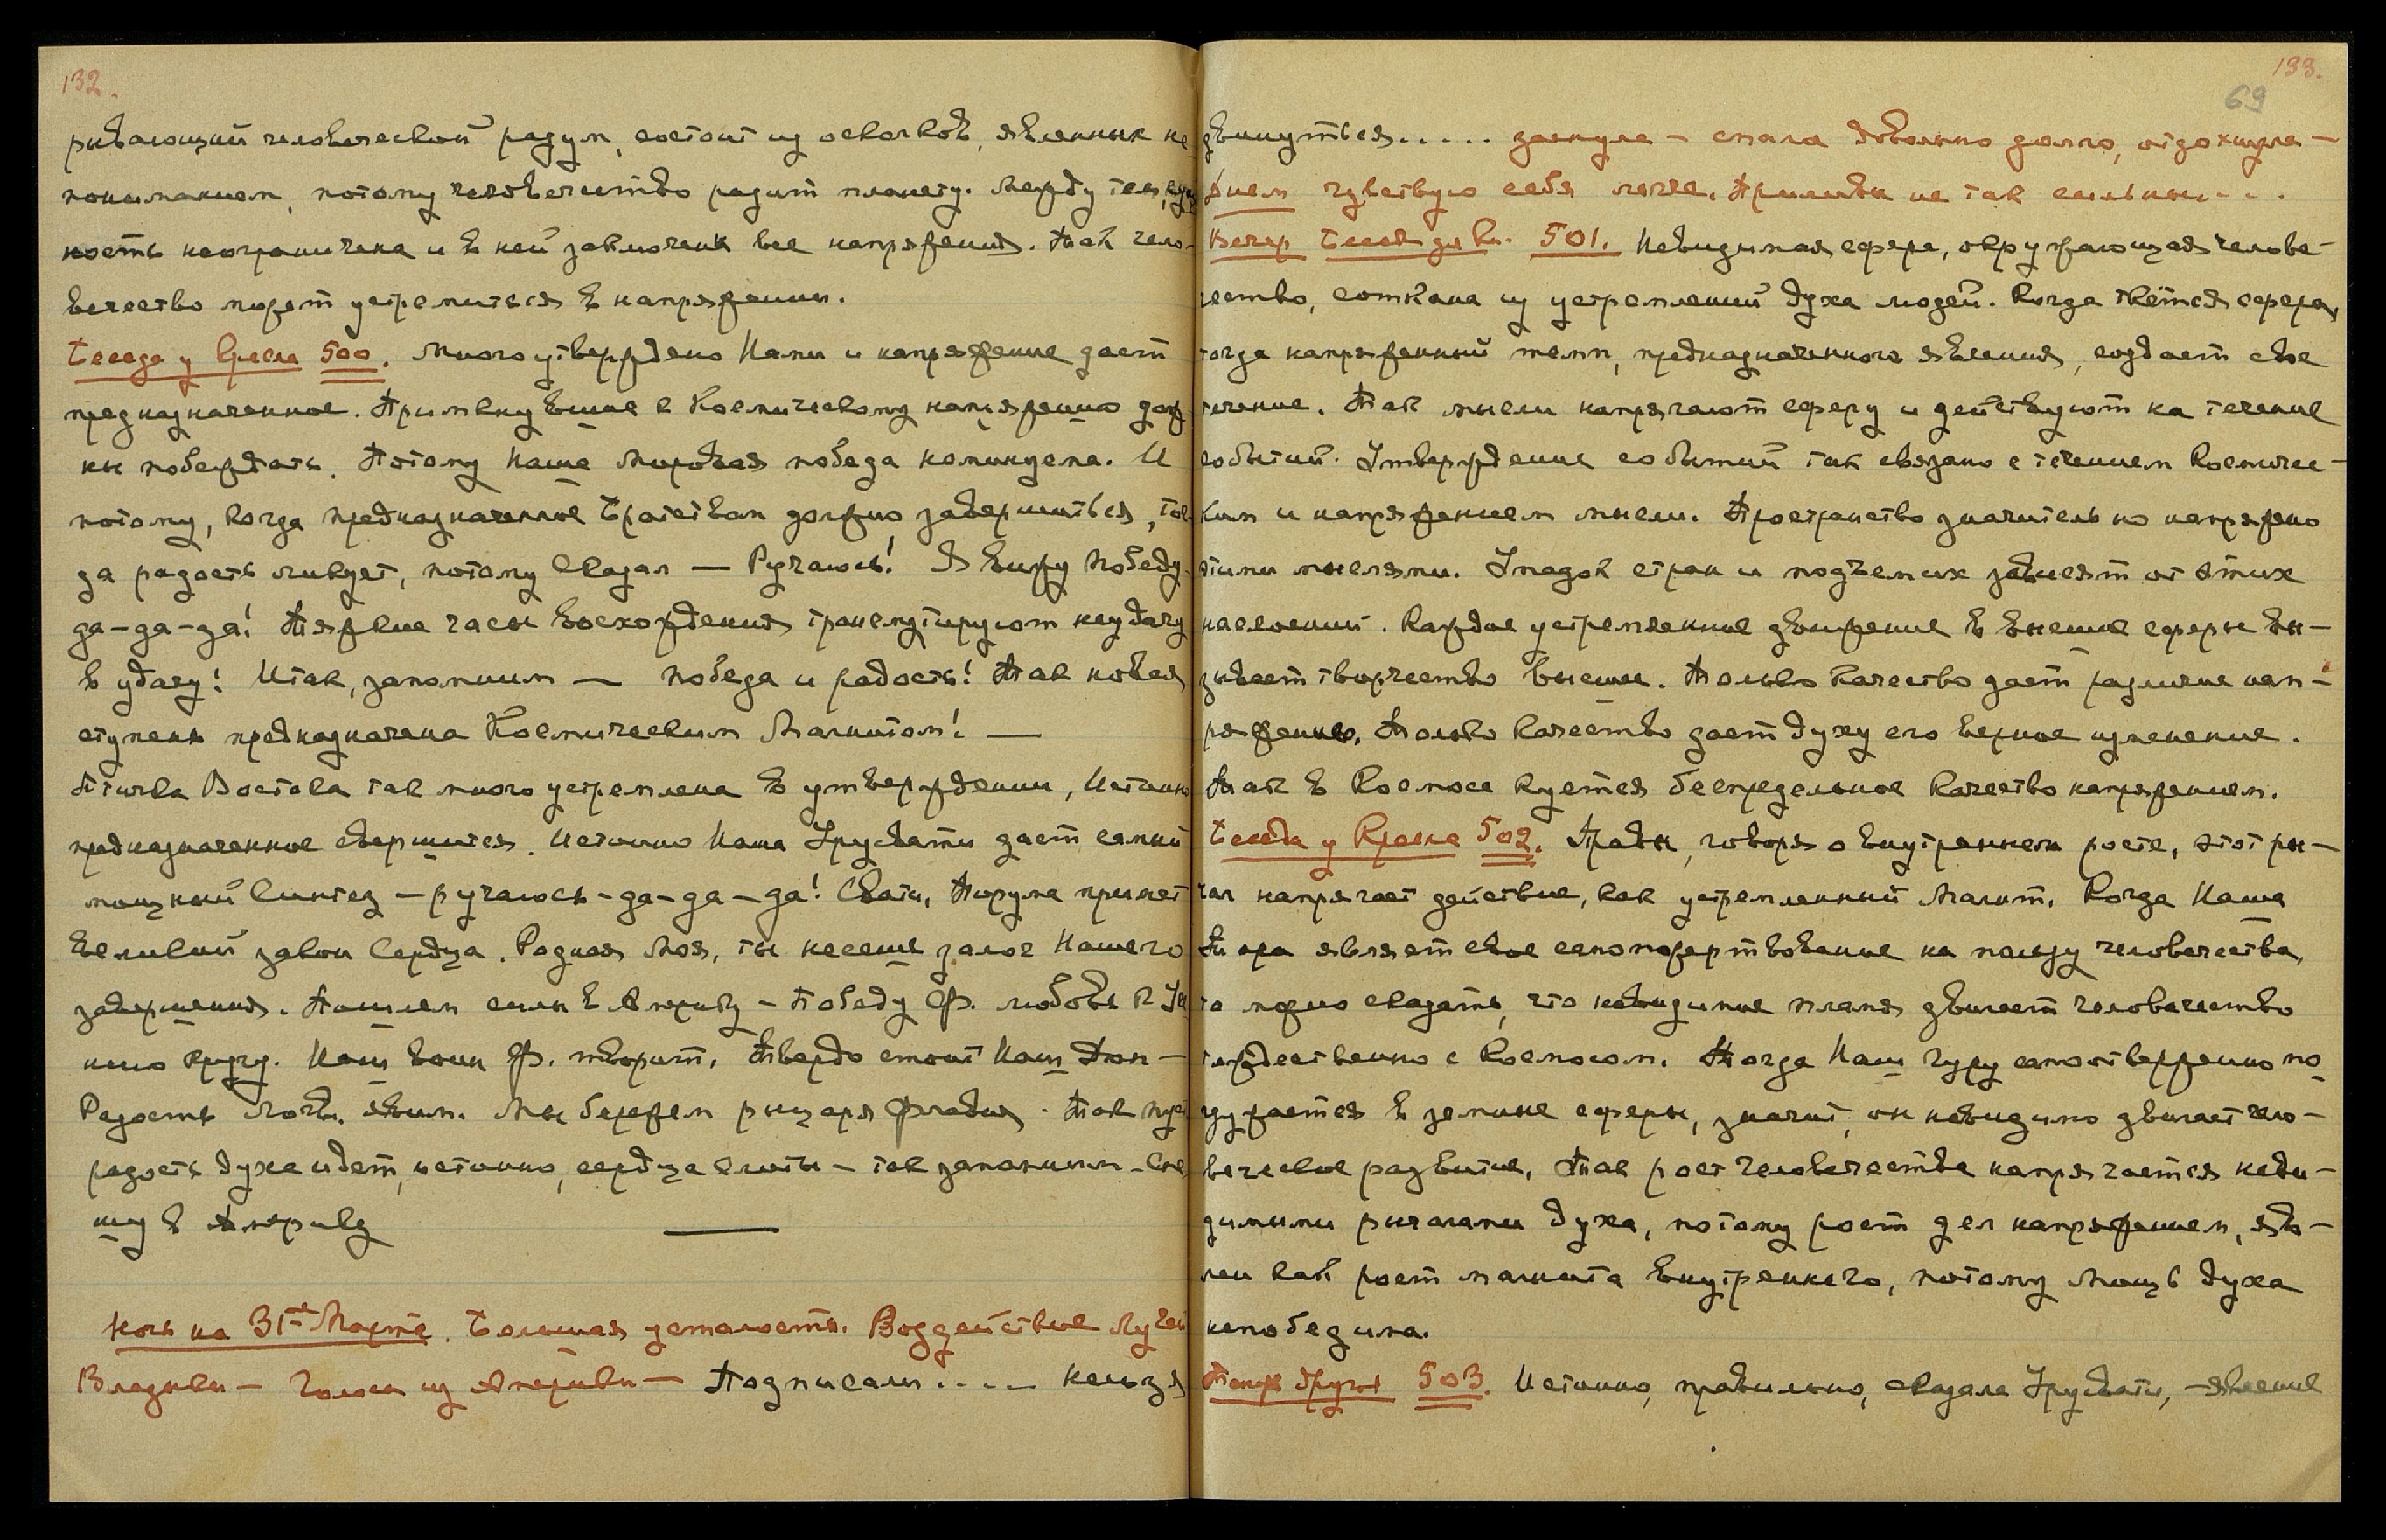 132.
рывающий человеческий разум, состоит из осколков, явленных не-
пониманием, потому человечество разит планету. Между тем,
ность неограничена и в ней заключены все напряжения. Так чело-
вечество может устремиться в напряжении.
Беседа у Кресла 500. Много утверждено Нами и напряжение дает
предназначенное. Примкнувшие к Космическому напряжению долж
ны побеждать. Потому Наша Мировая победа неминуема. И
потому, когда предназначенное Братством должно завершиться, тог
да радость ликует, потому Сказал — Ручаюсь! Я вижу победу.
да-да-да! Тяжкие часы восхождения трансмутируют неудачу
в удачу! Итак, запомним — победа и радость! Так новая
ступень предназначена Космическим Магнитом! —
Птичка Востока так много устремлена в утверждении, Истинно
предназначенное свершится. Истинно Наша Урусвати дает самый
мощный Синтез — ручаюсь - да-да-да! Свати, Нару́ма примет
Великий закон Сердца. Родная Моя, ты несешь залог Нашего
завершения. Пошлем силы в Америку — Победу Ф. любовь к
нию кругу. Наш воин Ф. творит. Твердо стоит Наш Дон —
Радость Логв. явим. Мы бережем рыцаря Флавия. Так
радость духа идет, истинно, сердца слиты — так запомним. —
шу в Америку
Ночь на 31-е Марта. Большая усталость. Воздействие Лучей
Владыки — Голоса из Америки — Подписали .... нельзя
133.
69
двинуться..... заснула — спала довольно долго, отдохнула —
Днем чувствую себя легче. Приливы не так сильны...
Вечер Беседа для Кн. 501. Невидимая сфера, окружающая челове-
чество, соткана из устремлений духа людей. Когда ткётся сфера,
тогда напряженный темп, предназначенного явления, создает свое
течение. Так мысли напрягают сферу и действуют на течение
событий. Утверждение событий так связано с течением Космичес-
ким и напряжением мысли. Пространство значительно напряжено
этими мыслями. Упадок стран и подъем их зависят от этих
наслоений. Каждое устремленное движение в высшие сферы вы-
зывает творчество высшее. Только качество дает различие нап-
ряжению. Только качество дает духу его верное изменение.
Так в Космосе куется беспредельное качество напряжением.
Беседа у Кресла 502. Правы, говоря о внутреннем росте, этот ры-
чаг напрягает действие, как устремленный Магнит. Когда Наша
Тара являет свое самопожертвование на пользу человечества,
то можно сказать, что невидимое пламя двигает человечество
тождественно с Космосом. Когда Наш Гуру самоотверженно по
гружается в земные сферы, значит, он невидимо двигает чело-
веческое развитие. Так рост человечества напрягается неви-
димыми рычагами духа, потому рост дел напряжением, яв-
лен как рост магнита внутреннего, потому мощь духа
непобедима.
Танцж Другы 503. Истинно, правильно, сказала Урусвати, — явление